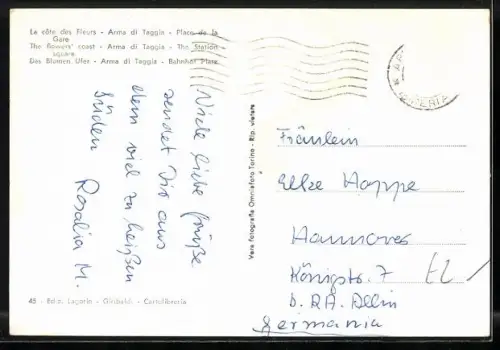 La côte des Fleurs - Arma di Taggia - Place de la
Gare
The flowers' coast - Arma di Taggia - The Station
square
Das Blumen Ufer - Arma di Taggia - Bahnhof Platz
Viele liebe Grüße
sendet Dir aus
dem viel zu heißen
Süden Rosalia M.
45 - Ediz. Lagorin - Giribaldi - Cartolibreria
Vera fotografia Omniafoto Torino - Rip. vietata
IMPERIA
Fräulein
Elke Hoppe
Hannover
Königstr. 7
b. RA. Dllin
Germania